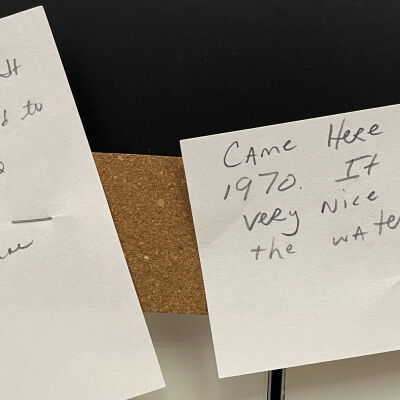 to
CAME HERE
1970. IT
very NICE
the WATER